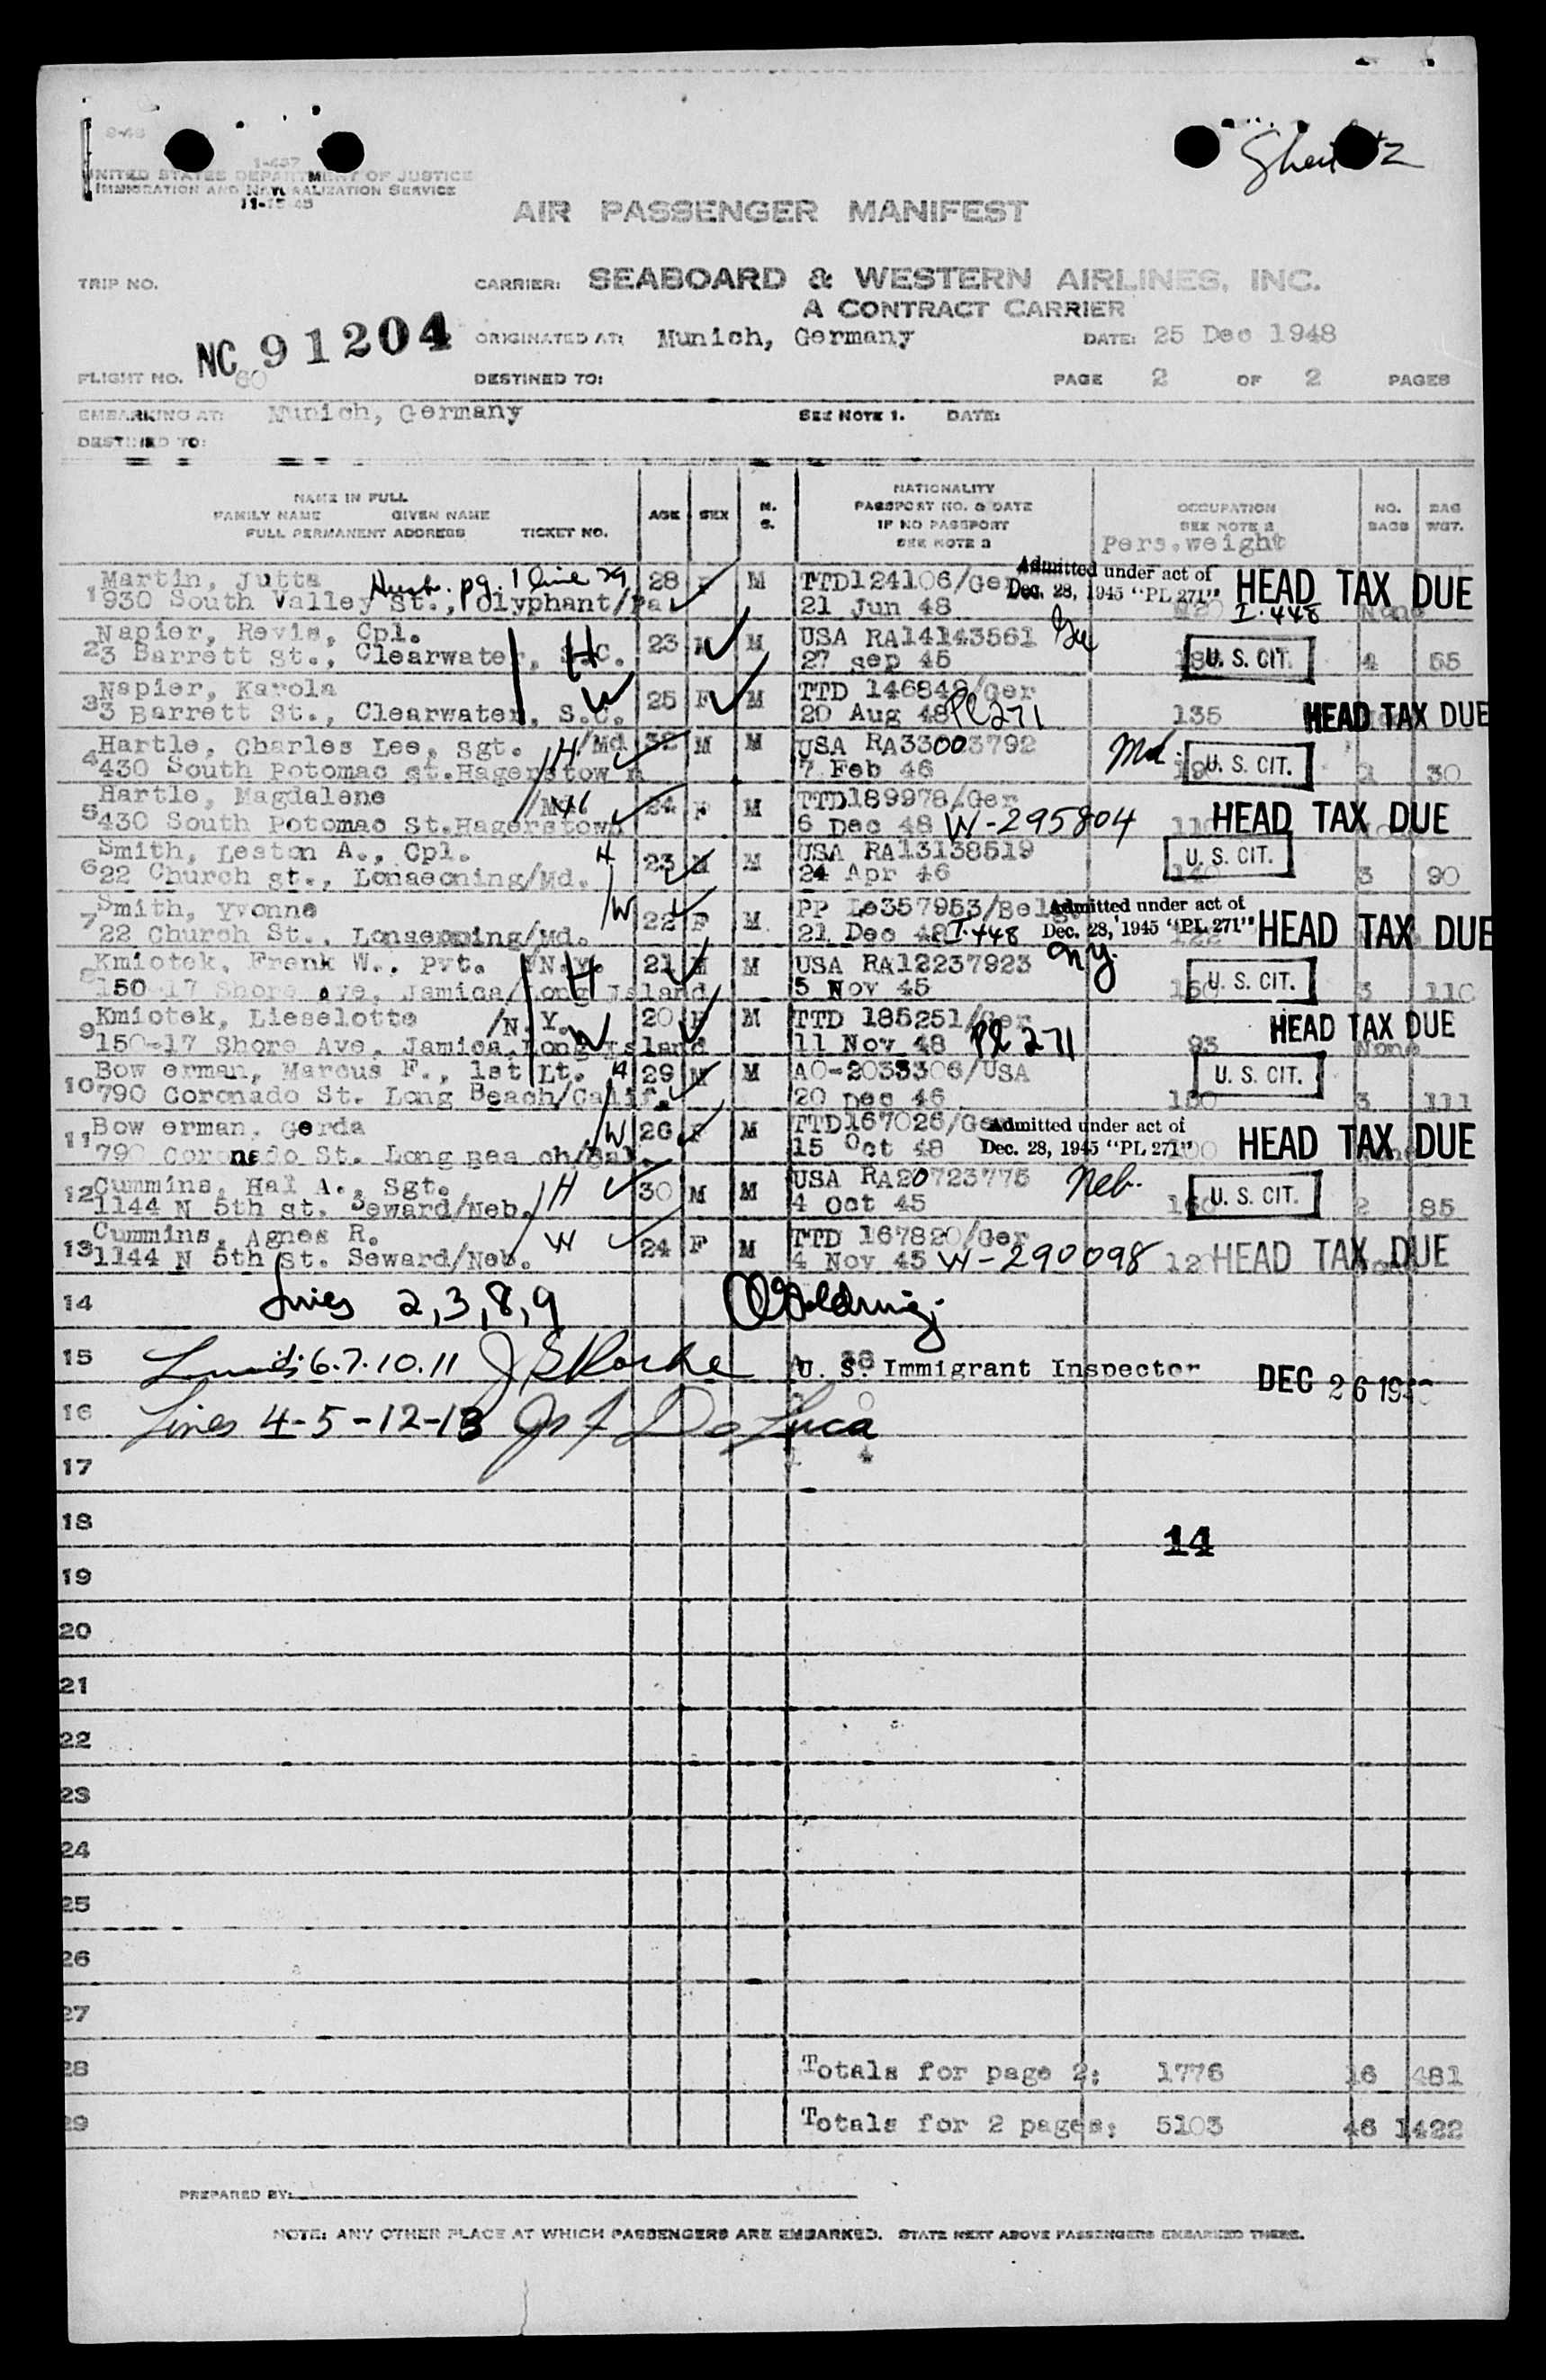 9-48
1-457
UNITED STATES DEPARTMENT OF JUSTICE
IMMIGRATION AND NATURALIZATION SERVICE
11-15-45
AIR PASSENGER MANIFEST
TRIP NO. CARRIER: SEABOARD & WESTERN AIRLINES, INC.
A CONTRACT CARRIER
NC 91204 ORIGINATED AT: Munich, Germany DATE: 25 Dec 1948
FLIGHT NO. 60 DESTINED TO: PAGE 2 OF 2 PAGES
EMBARKING AT: Munich, Germany SEE NOTE 1. DATE:
DESTINED TO:
NAME IN FULL
FAMILY NAME GIVEN NAME
FULL PERMANENT ADDRESS TICKET NO. AGE SEX M. S. NATIONALITY PASSPORT NO. & DATE IF NO PASSPORT SEE NOTE 3 OCCUPATION SEE NOTE 2 NO. BAGS BAG WGT.
Pers.weight
1 Martin, Jutta Husb. pg. 1 line 29 28 F M TTD124106/Ger Admitted under act of HEAD TAX DUE
930 South Valley St., Olyphant/Pa. 21 Jun 48 Dec. 28, 1945 "PL 271" I-448 None
2 Napier, Revis, Cpl. 23 M M USA RA14143561
3 Barrett St., Clearwater, S.C. H 27 Sep 45 U. S. CIT. 4 55
3 Napier, Karola W 25 F M TTD 146848/Ger
3 Barrett St., Clearwater, S.C. 20 Aug 48 PL 271 135 HEAD TAX DUE
4 Hartle, Charles Lee, Sgt. /Md H 32 M M USA RA33003792 Md.
430 South Potomac St.Hagerstown 7 Feb 46 U. S. CIT. 30
5 Hartle, Magdalene 24 F M TTD189978/Ger
430 South Potomac St.Hagerstown 6 Dec 48 W-295804 HEAD TAX DUE
6 Smith, Leston A., Cpl. H 23 M M USA RA13138519 U. S. CIT.
22 Church St., Lonaconing/Md. 24 Apr 46 140 3 90
7 Smith, Yvonne W 22 F M PP Le357953/Belg Admitted under act of HEAD TAX DUE
22 Church St., Lonaconing/Md. 21 Dec 48 I-448 Dec. 28, 1945 "PL 271" 122
8 Kmiotek, Frank W., Pvt. /N.Y. H 21 M M USA RA12237923 N.Y. U. S. CIT.
150-17 Shore Ave, Jamica/Long Island 5 Nov 45 3 110
9 Kmiotek, Lieselotte /N.Y. W 20 F M TTD 185251/Ger HEAD TAX DUE
150-17 Shore Ave, Jamica,Long Island 11 Nov 48 PL 271 93 None
10 Bow erman, Marcus F., 1st Lt. H 29 M M AO-2033306/USA U. S. CIT.
790 Coronado St. Long Beach/Calif. 20 Dec 46 3 111
11 Bow erman, Gerda W 26 F M TTD167026/Ger Admitted under act of HEAD TAX DUE
790 Coronado St. Long Bea ch/Cal. 15 Oct 48 Dec. 28, 1945 "PL 271"
12 Cummins, Hal A., Sgt. H 30 M M USA RA20723775 Neb. U. S. CIT.
1144 N 5th St. Seward/Neb. 4 Oct 45 160 2 85
13 Cummins, Agnes R. W 24 F M TTD 167820/Ger
1144 N 5th St. Seward/Neb. 4 Nov 45 W-290098 HEAD TAX DUE
14 Lines 2,3,8,9
15 6.7.10.11 U. S. Immigrant Inspector DEC 26 19
16 Lines 4-5-12-13 De Luca
17
18 14
19
20
21
22
23
24
25
26
27
28 Totals for page 2: 1776 16 481
29 Totals for 2 pages: 5103 46 1422
PREPARED BY:
NOTE: ANY OTHER PLACE AT WHICH PASSENGERS ARE EMBARKED. STATE NEXT ABOVE PASSENGERS EMBARKED THERE.